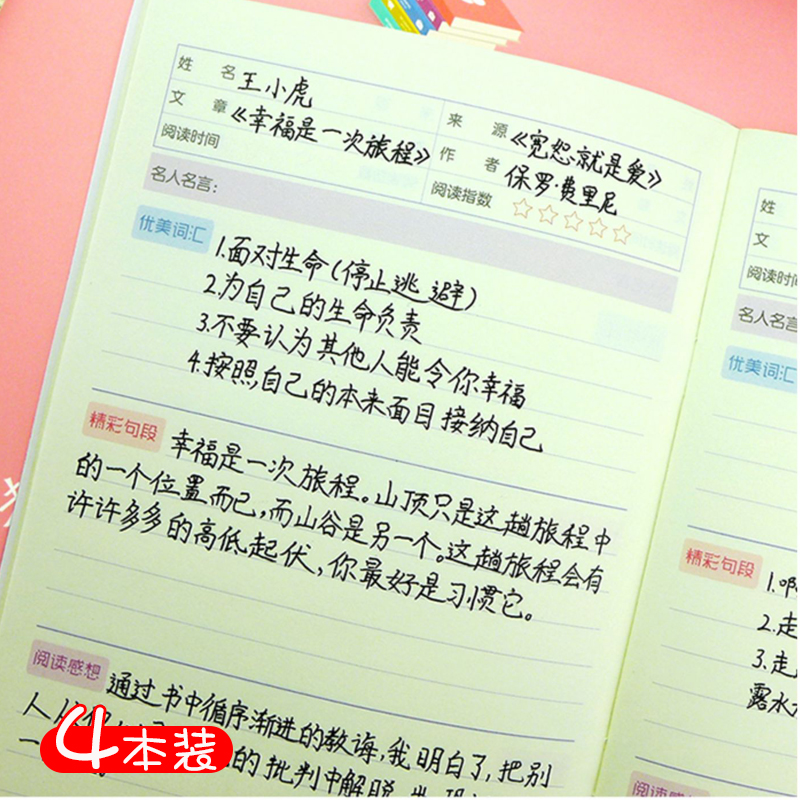 姓 名 王小虎
来 源 《宽恕就是爱》
文 章 《幸福是一次旅程》
作 者 保罗·费里尼
阅读时间
阅读指数 ☆☆☆☆☆
名人名言：
优美词汇
1.面对生命(停止逃避)
2.为自己的生命负责
3.不要认为其他人能令你幸福
4.按照自己的本来面目接纳自己
精彩句段
幸福是一次旅程。山顶只是这趟旅程中
的一个位置而已,而山谷是另一个。这趟旅程会有
许许多多的高低起伏,你最好是习惯它。
阅读感想
通过书中循序渐进的教诲,我明白了,把别
人
一
的批判中解脱
4本装
姓
文
阅读时间
名人名言
优美词汇
精彩句段
1.啊
2.走
3.走
露水
阅读感想